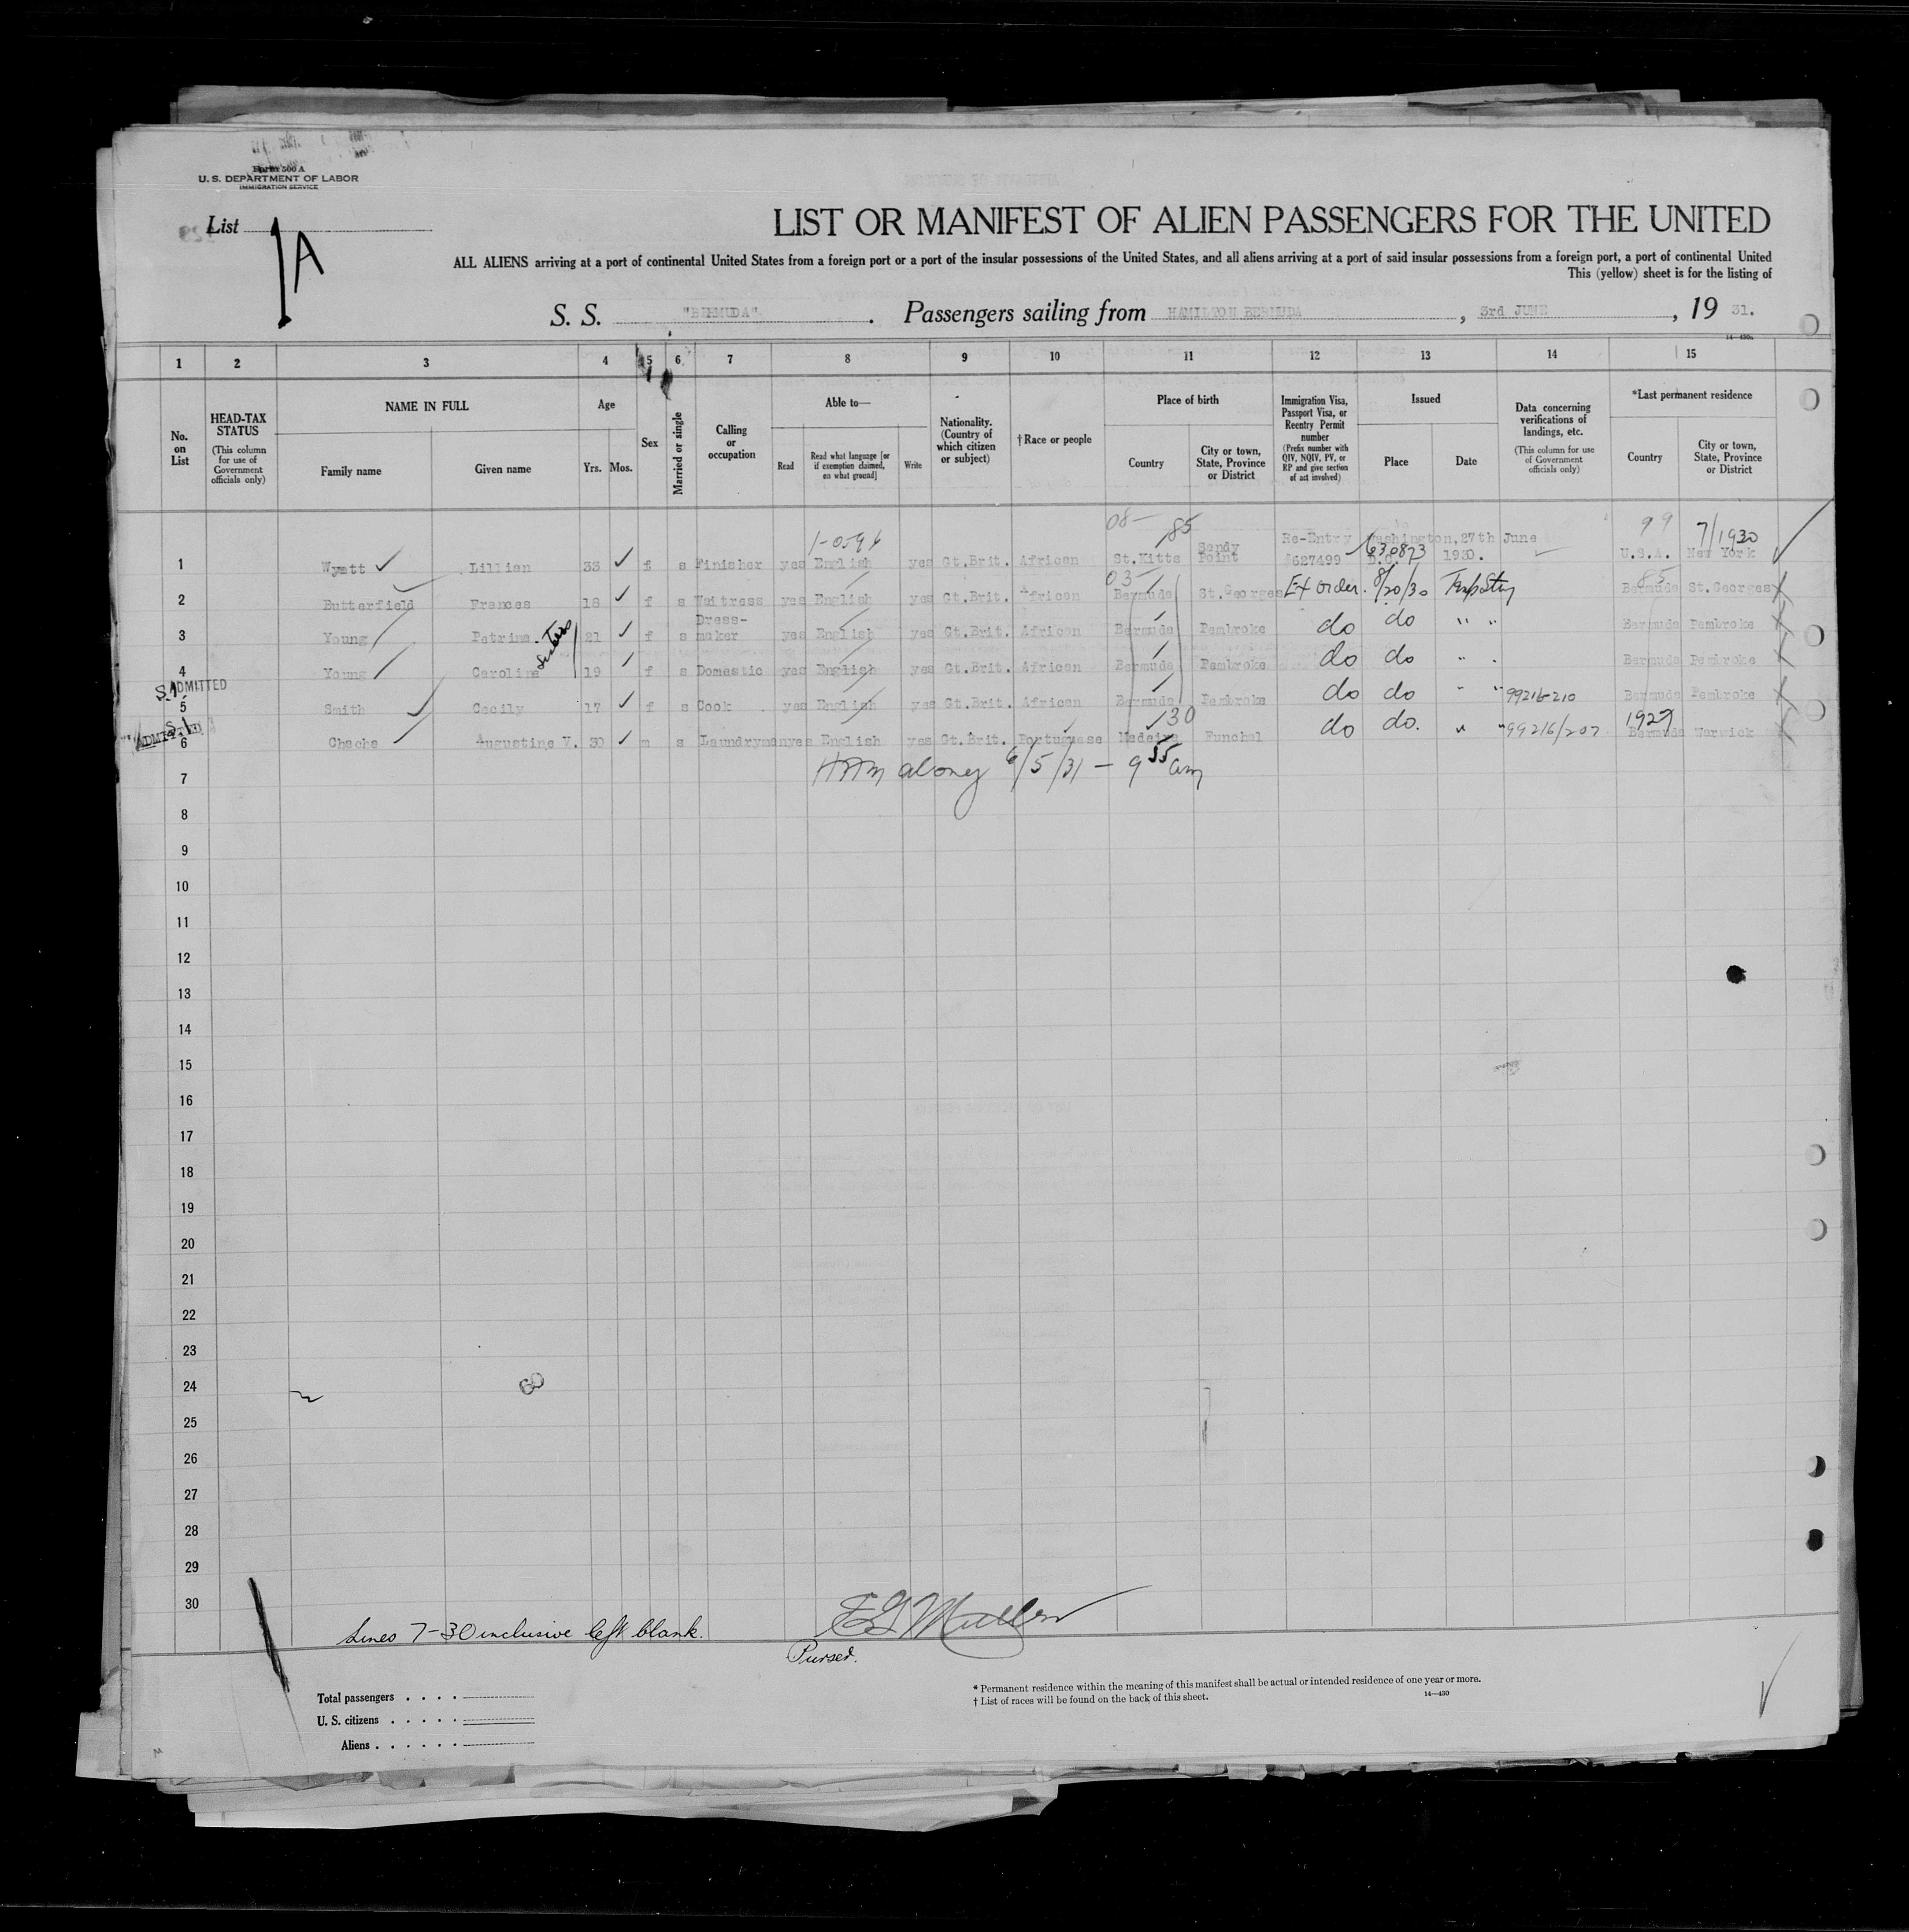 Form 500 A
U. S. DEPARTMENT OF LABOR
IMMIGRATION SERVICE
List 1A
LIST OR MANIFEST OF ALIEN PASSENGERS FOR THE UNITED
ALL ALIENS arriving at a port of continental United States from a foreign port or a port of the insular possessions of the United States, and all aliens arriving at a port of said insular possessions from a foreign port, a port of continental United
This (yellow) sheet is for the listing of
S. S. "BERMUDA". Passengers sailing from HAMILTON BERMUDA, 3rd JUNE, 19 31.
14—430a
1 2 3 4 5 6 7 8 9 10 11 12 13 14 15
No. on List
HEAD-TAX STATUS (This column for use of Government officials only)
NAME IN FULL Family name Given name
Age Yrs. Mos.
Sex
Married or single
Calling or occupation
Able to— Read Read what language [or if exemption claimed, on what ground] Write
Nationality. (Country of which citizen or subject)
† Race or people
Place of birth Country City or town, State, Province or District
Immigration Visa, Passport Visa, or Reentry Permit number (Prefix number with QIV, NQIV, PV, or RP and give section of act involved)
Issued Place Date
Data concerning verifications of landings, etc. (This column for use of Government officials only)
*Last permanent residence Country City or town, State, Province or District
08— 85 99 7/1930
1 Wyatt Lillian 33 f s Finisher yes English yes Gt.Brit. African St.Kitts Sandy Point Re-Entry #627499 630873 Washington, D.C. 27th June 1930. U.S.A. New York
03— 85
2 Butterfield Frances 18 f s Waitress yes English yes Gt.Brit. African Bermuda St.Georges Ex order. 8/20/30 Bermuda St.Georges
3 Young Petrina Sisters 21 f s Dress-maker yes English yes Gt.Brit. African Bermuda Pembroke do do " " Bermuda Pembroke
4 Young Caroline 19 f s Domestic yes English yes Gt.Brit. African Bermuda Pembroke do do " " Bermuda Pembroke
S.I. ADMITTED
5 Smith Cecily 17 f s Cook yes English yes Gt.Brit. African Bermuda Pembroke do do " " 99216-210 Bermuda Pembroke
S.I. ADMITTED
30 1927
6 Chacha Augustine V. 30 m s Laundryman yes English yes Gt.Brit. Portuguese Madeira Funchal do do. " " 99216/207 Bermuda Warwick
7 along 6/5/31 — 9 55 am
8
9
10
11
12
13
14
15
16
17
18
19
20
21
22
23
24
25
26
27
28
29
30
Lines 7-30 inclusive left blank.
Purser.
Total passengers
U. S. citizens
Aliens
* Permanent residence within the meaning of this manifest shall be actual or intended residence of one year or more.
† List of races will be found on the back of this sheet.
14—430